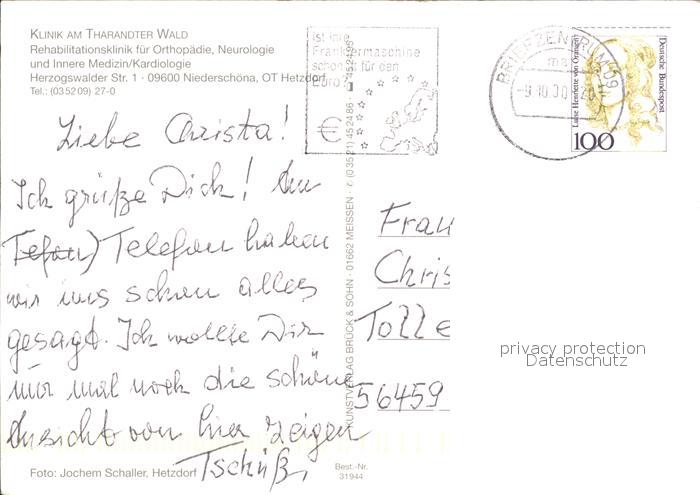 KLINIK AM THARANDTER WALD
Rehabilitationsklinik für Orthopädie, Neurologie
und Innere Medizin/Kardiologie
Herzogswalder Str. 1 · 09600 Niederschöna, OT Hetzdorf
Tel.: (0 35 2 09) 27-0
Liebe Christa!
Ich grüße Dich! Am
Telefon) Telefon haben
wir uns schon alles
gesagt. Ich wollte Dir
nur mal noch die schöne
Ansicht von hier zeigen
Tschüß,
Foto: Jochem Schaller, Hetzdorf
Best.-Nr.
31944
KUNSTVERLAG BRÜCK & SOHN · 01662 MEISSEN · ✆ (0 35 21) 45 24 86
Ist Ihre
Frankiermaschine
schon fit für den
Euro?
€
BRIEFZENTRUM 09
-9.10.00
Deutsche Bundespost
Luise Henriette von Oranien
100
Frau
Chris
Tolle
56459
privacy protection
Datenschutz